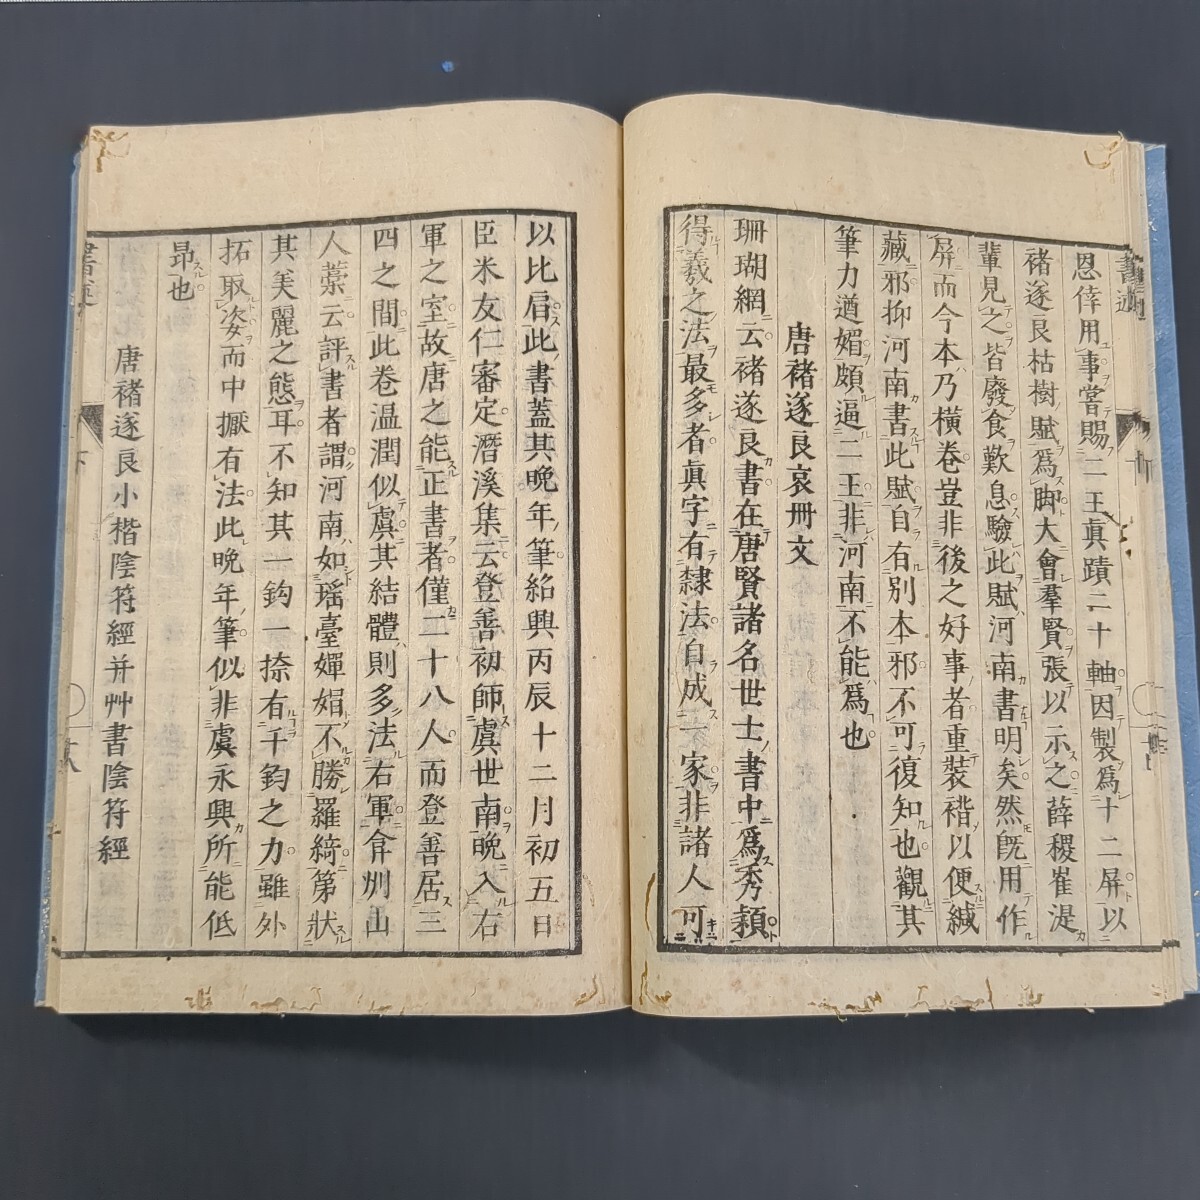 恩倖用事嘗賜二王眞蹟二十軸因製爲十二屏以
褚遂良枯樹賦爲脚大會羣賢張以示之薛稷崔湜
輩見之皆廢食歎息驗此賦河南書明矣然既用作
屏而今本乃橫卷豈非後之好事者重裝褙以便緘
藏邪抑河南書此賦自有別本邪不可復知也觀其
筆力遒媚頗逼二王非河南不能爲也
唐褚遂良哀冊文
珊瑚網云褚遂良書在唐賢諸名世士書中爲秀穎
得羲之法最多者眞字有隸法自成一家非諸人可
以比肩此書蓋其晚年筆紹興丙辰十二月初五日
臣米友仁審定潛溪集云登善初師虞世南晚入右
軍之室故唐之能正書者僅二十八人而登善居三
四之間此卷温潤似虞其結體則多法右軍弇州山
人藁云評書者謂河南如瑶臺嬋娟不勝羅綺第狀
其美麗之態耳不知其一鈎一捺有千鈞之力雖外
拓取姿而中擫有法此晚年筆似非虞永興所能低
昂也
唐褚遂良小楷陰符經并艸書陰符經